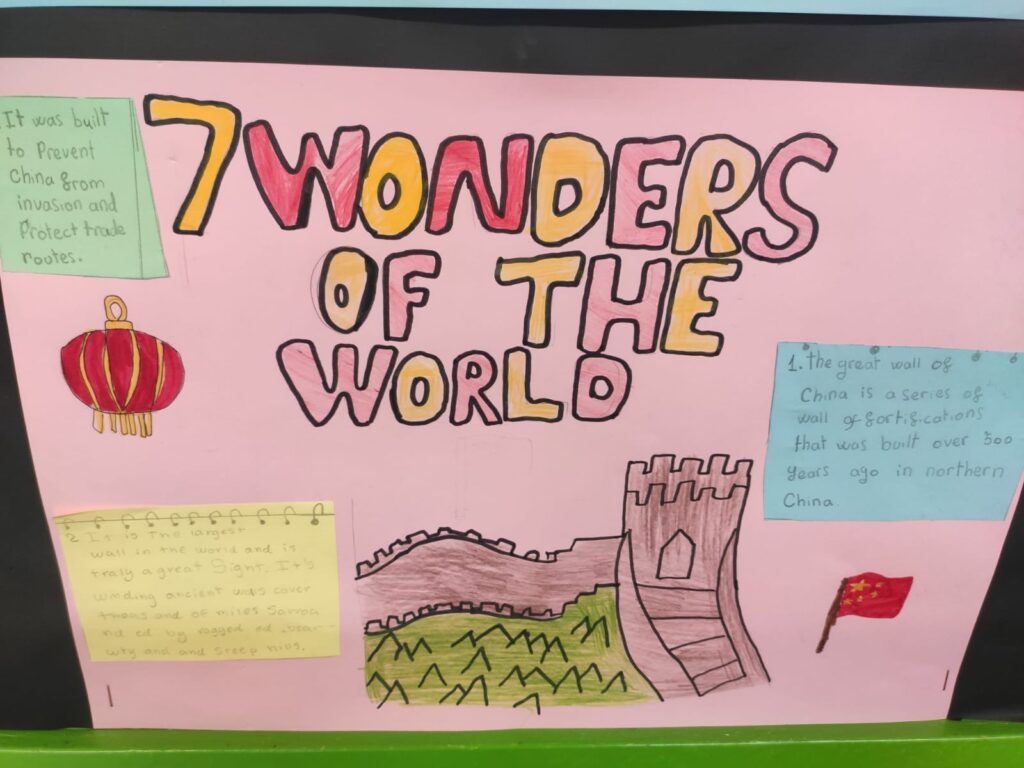 7 WONDERS
OF THE
WORLD
It was built
to Prevent
China from
invasion and
Protect trade
routes.
1. The great wall of
China is a series of
wall of fortifications
that was built over 500
years ago in northern
China
2. It is the largest
wall in the world and is
truly a great Sight. It's
winding ancient cover
and of miles
ed by
and and steep